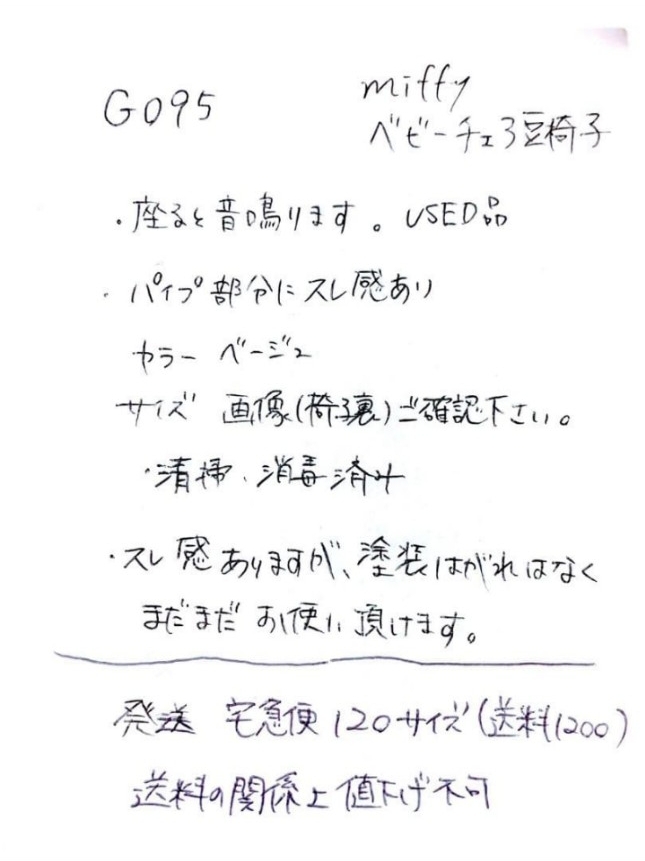 G095
miffy
ベビーチェア豆椅子
・座ると音鳴ります。USED品
・パイプ部分にスレ感あり
カラー ベージュ
サイズ 画像(椅子裏)ご確認下さい。
・清掃、消毒済み
・スレ感ありますが、塗装はがれはなく
まだまだお使い頂けます。
発送 宅急便120サイズ(送料1200)
送料の関係上値下げ不可